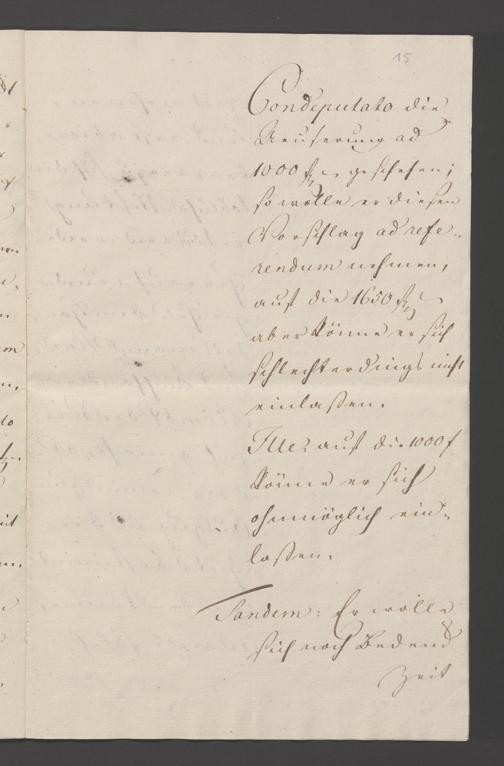 15
Condeputato die
Aeuserung ad
1000 f geschehen;
so wolle er diesen
Vorschlag ad refe-
rendum nehmen,
auf die 1650 f
aber könne er sich
schlechterdings nicht
einlaßen.
Ille: auf die 1000 f
könne er sich
ohnmöglich ein-
laßen.
Tandem: Er wolle
sich noch Bedenk
Zeit